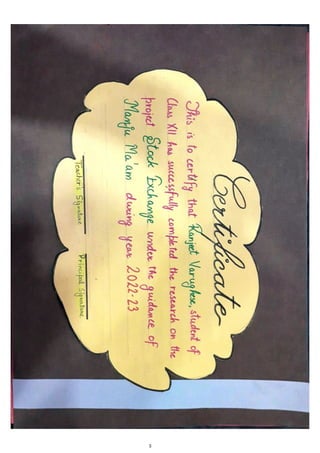 Certificate
This is to certify that Ranjeet Varughese, student of
Class XII has successfully completed the research on the
project Stock Exchange under the guidance of
Manju Ma'am during year 2022-23
Teacher's Signature Principal Signature
5